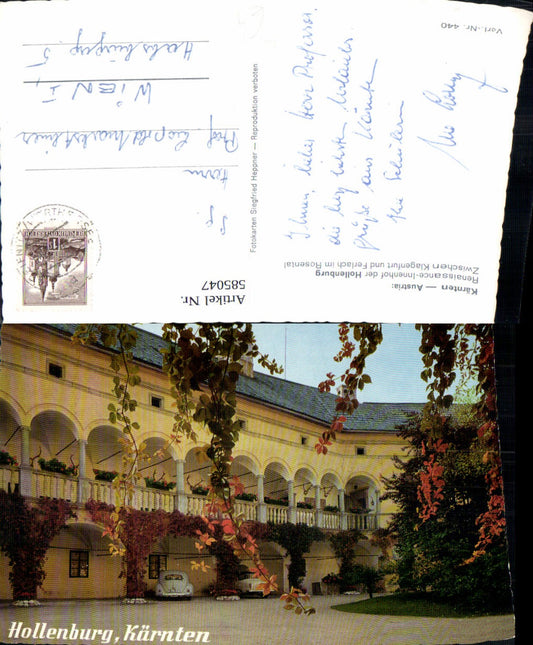 Verl.-Nr. 440
Ihnen, lieber Herr Professor,
die herzlichsten
Grüße aus Kärnten
Ihre Schülerin
Herrn
Prof. Leopold
WIEN I,
Habsburgerg. 5
Fotokarten Siegfried Heppner — Reproduktion verboten
Kärnten — Austria:
Renaissance-Innenhof der Hollenburg
Zwischen Klagenfurt und Ferlach im Rosental
Artikel Nr.
585047
REPUBLIK ÖSTERREICH
Hollenburg, Kärnten